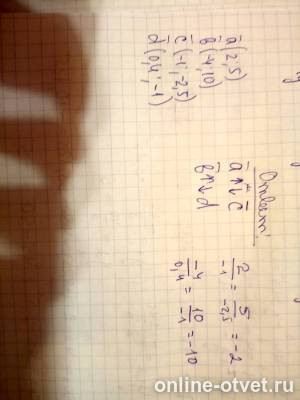 Ответ:
a̅(2;5)
b̅(-4;10)
c̅(-1;-2,5)
d̅(0,4;-1)
a̅ ↑↓ c̅
b̅ ↑↓ d
2/-1 = 5/-2,5 = -2
-4/0,4 = 10/-1 = -10
online-otvet.ru